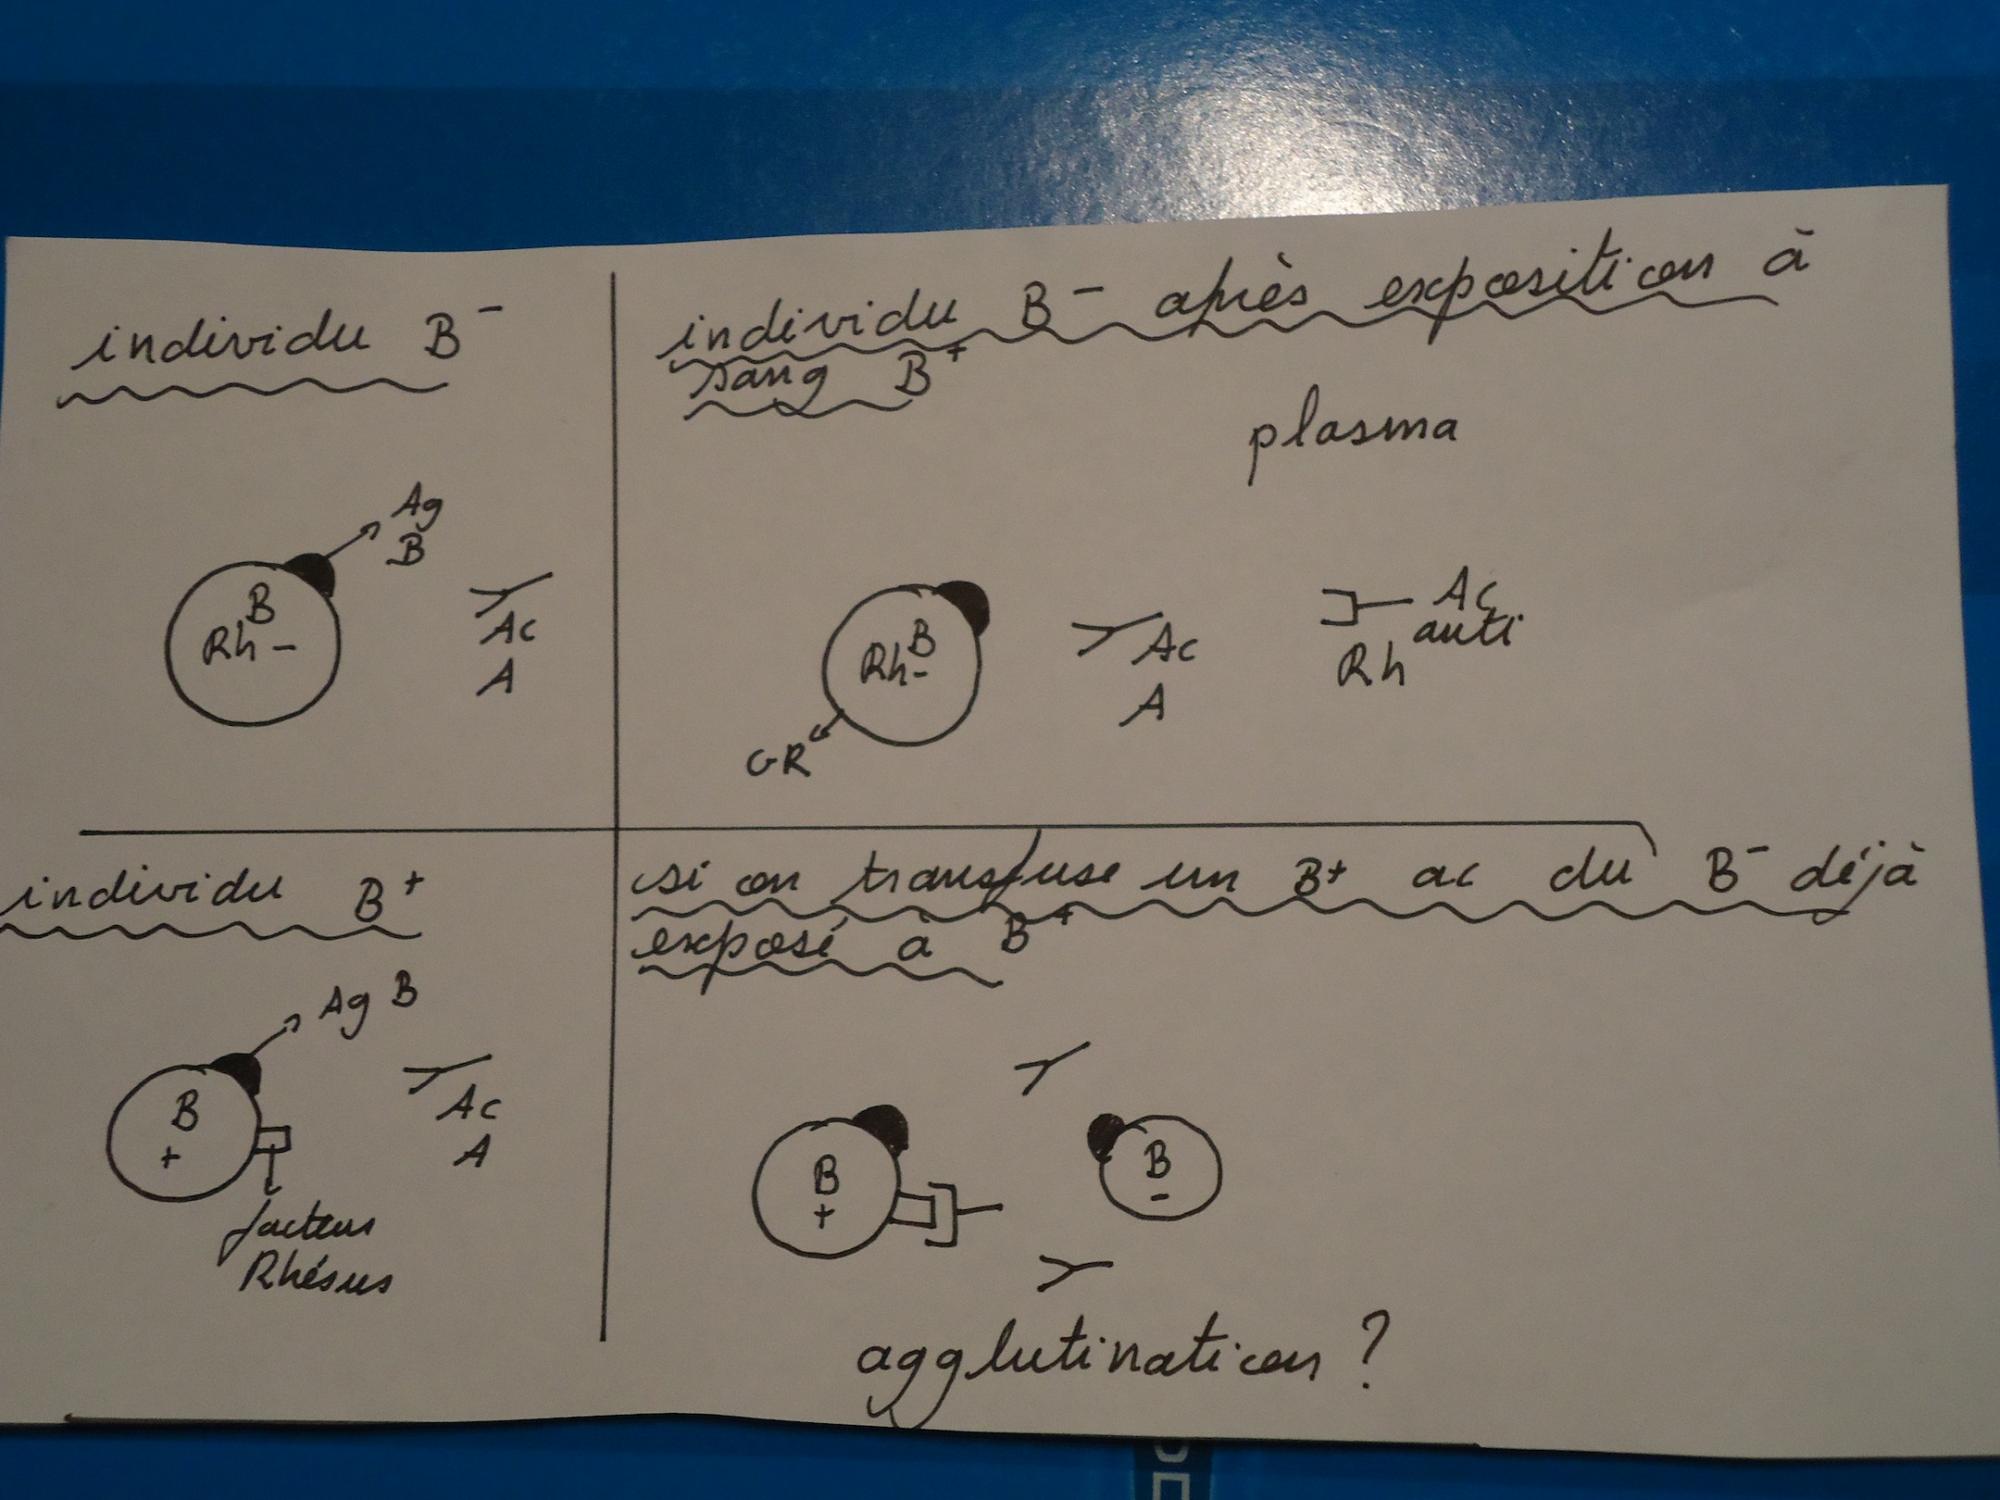 individu B⁻
Ag
B
B
Rh -
Ac
A
individu B⁻ après exposition à
sang B⁺
plasma
B
Rh-
GR
Ac
A
Ac
anti
Rh
individu B⁺
Ag B
B
+
Ac
A
facteur
Rhésus
si on transfuse un B+ ac du B⁻ déjà
exposé à B⁺
B
+
B
-
agglutination ?